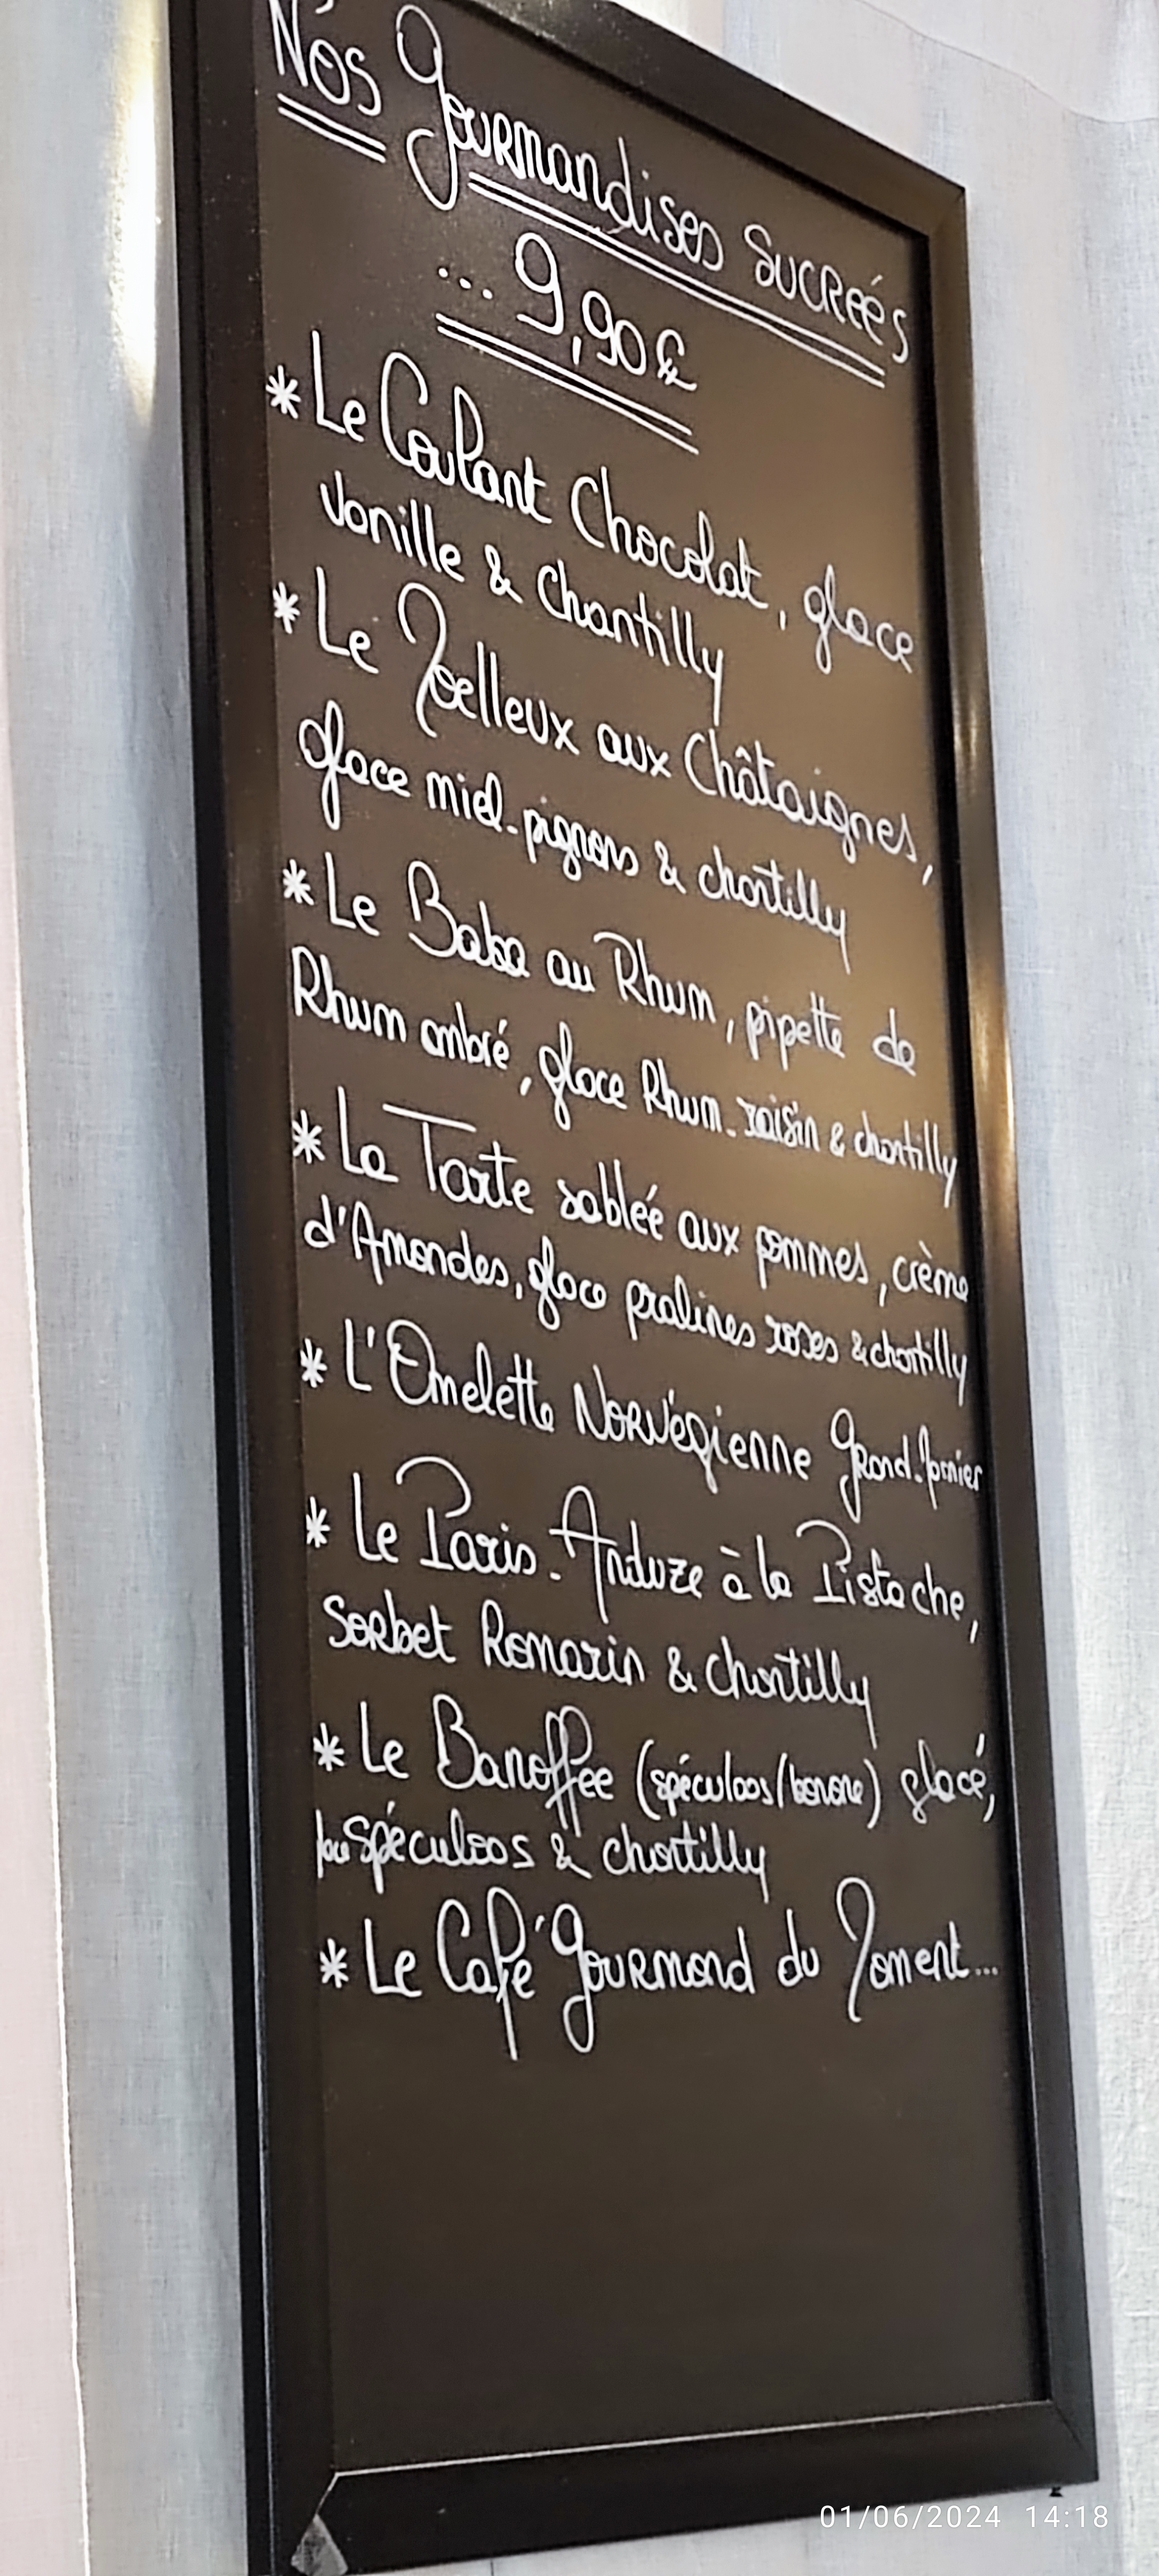 Nos Gourmandises Sucrées
... 9,90€
* Le Coulant Chocolat, glace
vanille & chantilly
* Le Moelleux aux Châtaignes,
glace miel-pignons & chantilly
* Le Baba au Rhum, pipette de
Rhum ambré, glace Rhum-raisin & chantilly
* La Tarte sablée aux pommes, crème
d'Amandes, glace pralines roses & chantilly
* L'Omelette Norvégienne Grand-Marnier
* Le Paris-Anduze à la Pistache,
Sorbet Romarin & chantilly
* Le Banoffee (spéculoos/banane) glacé,
spéculoos & chantilly
* Le Café Gourmand du Moment...
01/06/2024 14:18